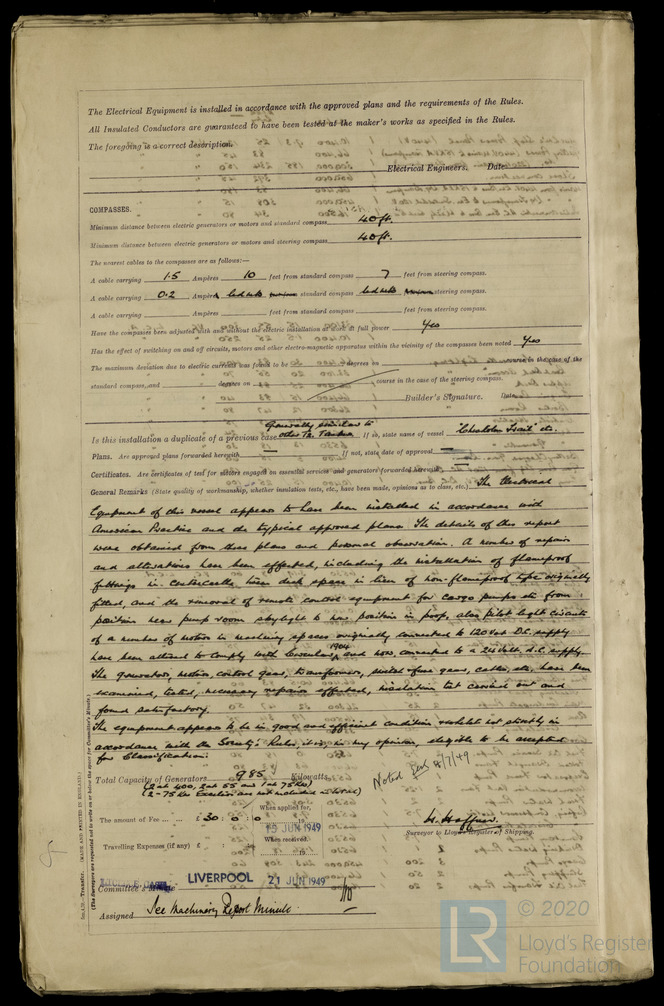 The Electrical Equipment is installed in accordance with the approved plans and the requirements of the Rules.
All Insulated Conductors are guaranteed to have been tested at the maker's works as specified in the Rules.
The foregoing is a correct description.
Electrical Engineers. Date
COMPASSES.
Minimum distance between electric generators or motors and standard compass 40 ft.
Minimum distance between electric generators or motors and steering compass 40 ft.
The nearest cables to the compasses are as follows:—
A cable carrying 1.5 Ampères 10 feet from standard compass 7 feet from steering compass.
A cable carrying 0.2 Ampères led into standard compass led into steering compass.
A cable carrying Ampères feet from standard compass feet from steering compass.
Have the compasses been adjusted with and without the electric installation at work at full power Yes
Has the effect of switching on and off circuits, motors and other electro-magnetic apparatus within the vicinity of the compasses been noted Yes
The maximum deviation due to electric currents was found to be degrees on course in the case of the
standard compass, and degrees on course in the case of the steering compass.
Builder's Signature. Date
Generally similar to
Is this installation a duplicate of a previous case other T2 Tankers If so, state name of vessel "Chisholm Trail" etc.
Plans. Are approved plans forwarded herewith If not, state date of approval
Certificates. Are certificates of test for motors engaged on essential services and generators forwarded herewith
General Remarks (State quality of workmanship, whether insulation tests, etc., have been made, opinions as to class, etc.) The Electrical
Equipment of this vessel appears to have been installed in accordance with
American Practice and the typical approved plans. The details of this report
were obtained from these plans and personal observation. A number of repairs
and alterations have been effected, including the installation of flameproof
fittings in centrecastle tween deck space in lieu of non-flameproof type originally
fitted, and the removal of remote control equipment for cargo pumps etc from
position near pump room skylight to new position in poop, also pilot light circuits
of a number of motors in machinery spaces originally connected to 120 Volt D.C. supply
have been altered to comply with Circular 1904 and now connected to a 24 Volt A.C. supply.
The generators, motors, control gear, transformers, switch & fuse gear, cables, etc, have been
examined, tested, necessary repairs effected, insulation test carried out and
found satisfactory.
The equipment appears to be in good and efficient condition & whilst not strictly in
accordance with the Society's Rules, it is, in my opinion, eligible to be accepted
for Classification.
Noted 8/7/49
Total Capacity of Generators 985 Kilowatts.
(2 at 400, 2 at 55 and 1 at 75 Kw)
(2 - 75 Kw Exciters are not included in total)
The amount of Fee £ 30 : 0 : 0 When applied for, 15 JUN 1949
Travelling Expenses (if any) £ When received, 19
H. Haffner.
Surveyor to Lloyd's Register of Shipping.
Committee's Minute LIVERPOOL 21 JUN 1949
Assigned See Machinery Report Minute.
5m.4.39.—Transfer. (MADE AND PRINTED IN ENGLAND.)
(The Surveyors are requested not to write on or below the space for Committee's Minute.)
LR
© 2020
Lloyd's Register
Foundation